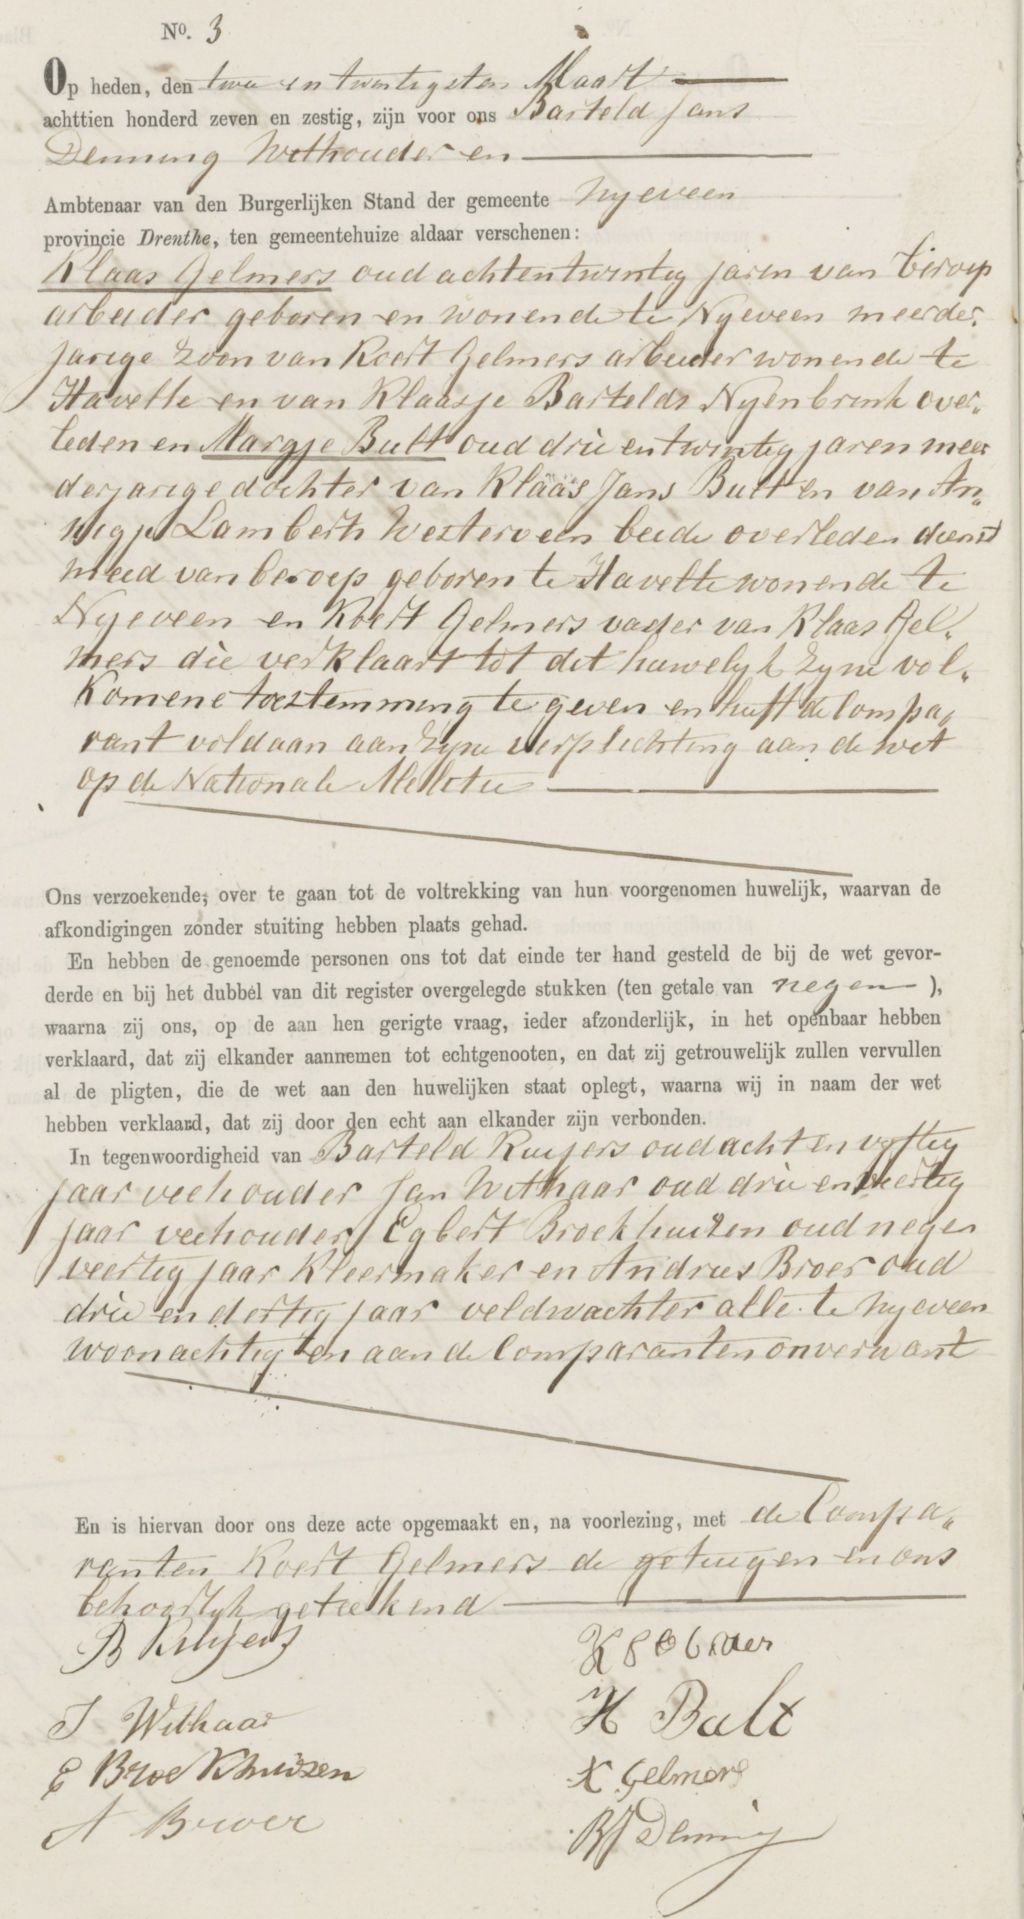 No. 3
Op heden, den twee en twentigsten Maart
achttien honderd zeven en zestig, zijn voor ons Barteld Jans
Denning Wethouder en
Ambtenaar van den Burgerlijken Stand der gemeente Nyeveen
provincie Drenthe, ten gemeentehuize aldaar verschenen:
Klaas Gelmers oud achtentwintig jaren van beroep
arbeider geboren en wonende te Nyeveen meerder„
jarige zoon van Koert Gelmers arbeider wonende te
Havelte en van Klaasje Bartelds Nyenbrink over„
leden en Margje Bult oud drie entwintig jaren meer
derjarige dochter van Klaas Jans Bult en van An„
nigje Lamberts Westerveen beide overleden dienst
meid van beroep geboren te Havelte wonende te
Nyeveen en Koert Gelmers vader van Klaas Gel„
mers die verklaart tot dit huwelyk zyne vol„
komene toestemming te geven en heeft de Compa„
rant voldaan aan zyne verplichting aan de wet
op de Nationale Melietie
Ons verzoekende, over te gaan tot de voltrekking van hun voorgenomen huwelijk, waarvan de
afkondigingen zonder stuiting hebben plaats gehad.
En hebben de genoemde personen ons tot dat einde ter hand gesteld de bij de wet gevor-
derde en bij het dubbel van dit register overgelegde stukken (ten getale van negen),
waarna zij ons, op de aan hen gerigte vraag, ieder afzonderlijk, in het openbaar hebben
verklaard, dat zij elkander aannemen tot echtgenooten, en dat zij getrouwelijk zullen vervullen
al de pligten, die de wet aan den huwelijken staat oplegt, waarna wij in naam der wet
hebben verklaard, dat zij door den echt aan elkander zijn verbonden.
In tegenwoordigheid van Barteld Kuijers oud acht en vyftig
jaar veehouder Jan Withaar oud drie en veertig
jaar veehouder Egbert Broekhuizen oud negen
veertig jaar Kleermaker en Andries Broer oud
drie en dertig jaar veldwachter alle te Nyeveen
woonachtig en aan de Comparanten onverwant
En is hiervan door ons deze acte opgemaakt en, na voorlezing, met de Compa„
ranten Koert Gelmers de getuigen en ons
behoorlyk geteekend
B Kuijers
J Withaar
E Broekhuizen
A Broer
M Bult
K Gelmers
BJ Denning